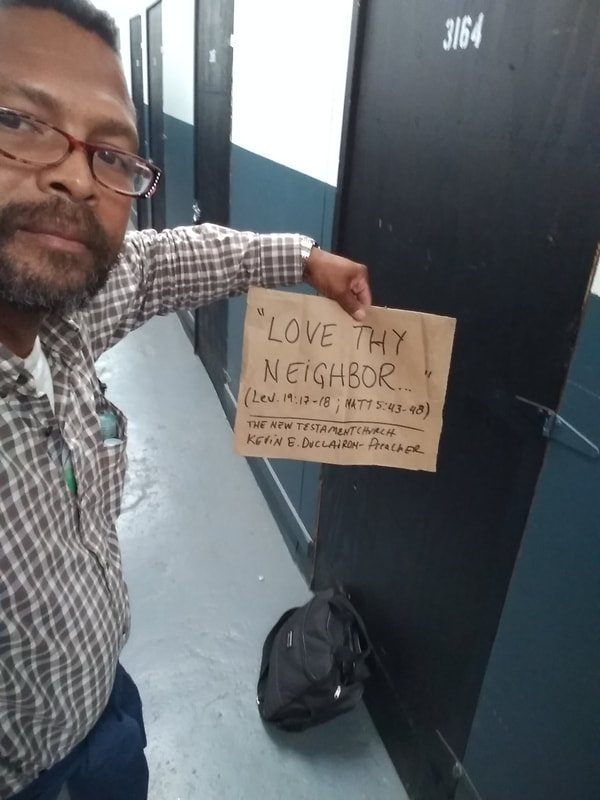 3164
"LOVE THY
NEIGHBOR..."
(Lev. 19:17-18 ; MATT 5:43-48)
THE NEW TESTAMENT CHURCH
KEVIN E. DUCLAIRON - PREACHER